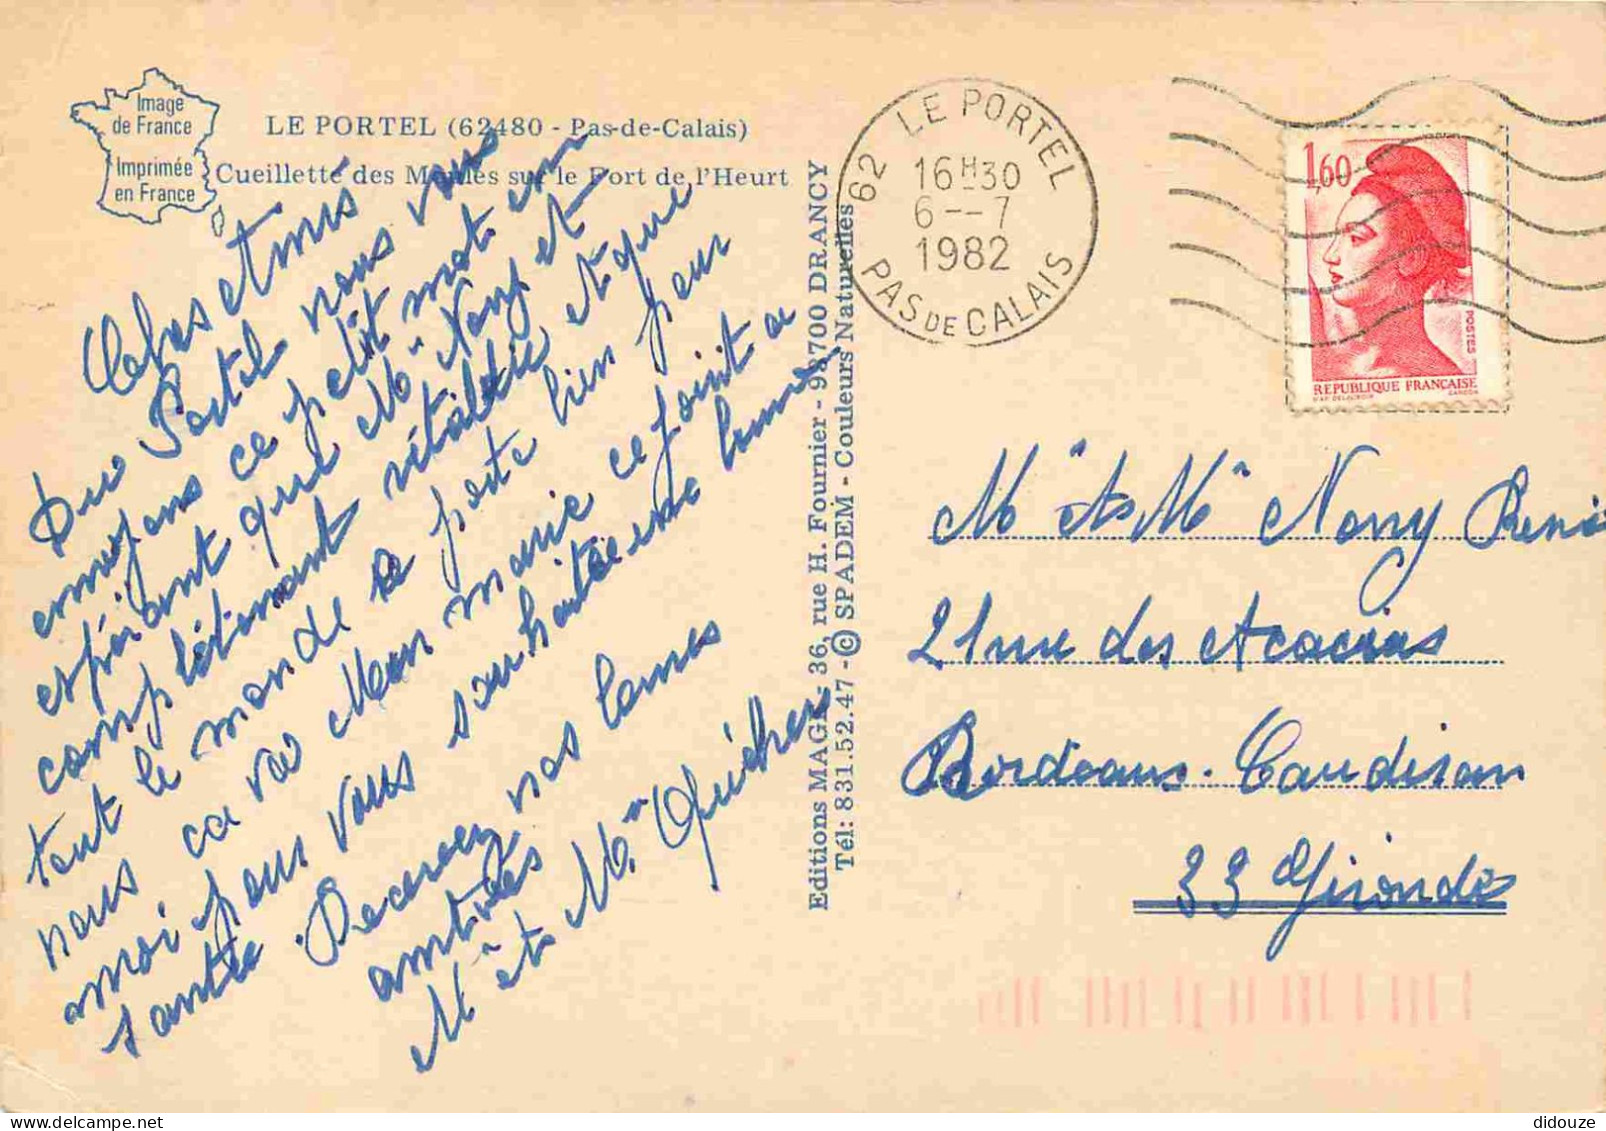 Image
de France
Imprimée
en France
LE PORTEL (62480 - Pas-de-Calais)
Cueillette des Moules sur le Fort de l'Heurt
Chers Amis
Du Portel nous vous
envoyons ce petit mot en
espérant que Mr Nony et
complètement rétablie et que
tout le monde se porte bien pour
nous ca va Mon marie ce joint a
moi pour vous souhaitée une bonne
santée Recevez nos bonnes
amitiées
Mr et Mm Quicher
Editions MAGE, 36, rue H. Fournier - 93700 DRANCY
Tél: 831.52.47 - © SPADEM - Couleurs Naturelles
62 LE PORTEL
16H30
6 -- 7
1982
PAS DE CALAIS
1,60
POSTES
REPUBLIQUE FRANCAISE
D'AP. DELACROIX GANDON
Mr et Mm Nony
21 rue des Acacias
Bordeaus. Caudiran
33 Gironde
didouze